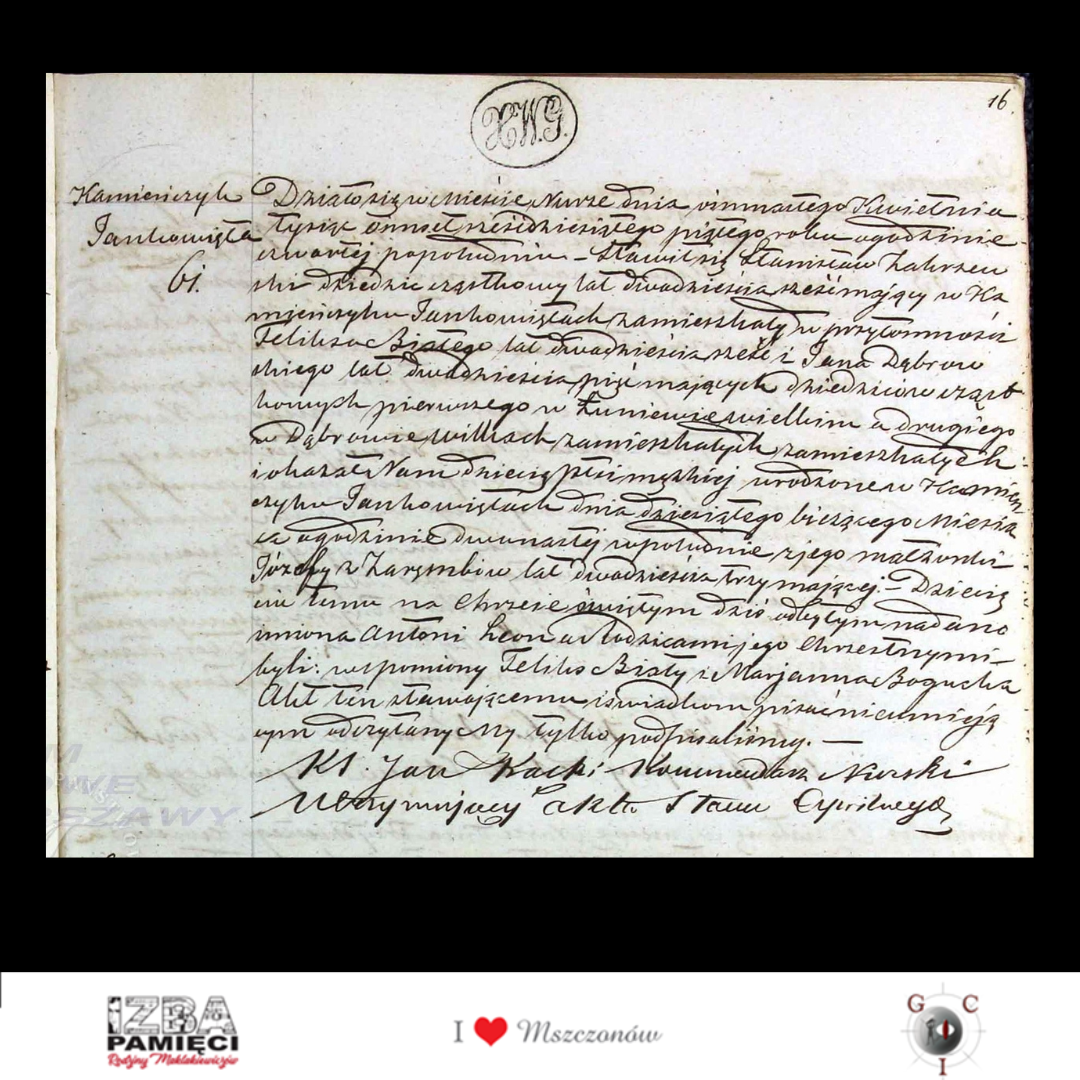 16.
X.W.G.
Kamieńczyk
Jankowięta
61.
Działo się w Mieście Nurze dnia osiemnastego Kwietnia
tysiąc ośmset sześćdziesiątego piątego roku o godzinie
czwartej popołudniu – Stawił się Stanisław Zakrzew
ski dziedzic cząstkowy lat dwadzieścia sześć mający w Ka
mieńczyku Jankowiętach zamieszkały w przytomności
Felixa Białego lat dwadzieścia sześć i Jana Dąbrow
skiego lat dwadzieścia pięć mających dziedziców cząst
kowych pierwszego w Łuniewie wielkim a drugiego
w Dąbrowie Wilkach zamieszkałych zamieszkałych
i okazał Nam dziecię płci męzkiej urodzone w Kamień
czyku Jankowiętach dnia dziesiątego bieżącego Miesią
ca o godzinie dwunastej w południe z jego małżonki
Józefy z Zarembów lat dwadzieścia trzy mającej – Dziecię
ciu temu na Chrzcie świętym dziś odbytym nadano
imiona Antoni Leon a Rodzicami jego Chrzestnymi
byli: wspomiony Felix Biały i Marjanna Bogucka
Akt ten stawającemu i świadkom pisać nieumieją
cym odczytany My tylko podpisaliśmy. —
Kś. Jan Kommendarz Nurski
Utrzymujący akta Stanu Cywilnego
IZBA
PAMIĘCI
Rodziny Maklakiewiczów
I ❤ Mszczonów
G C
I